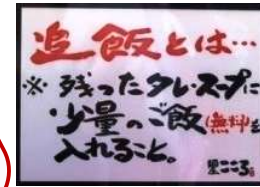 追飯とは…
※残ったタレ・スープに
少量のご飯(無料)を
入れること。
こころ